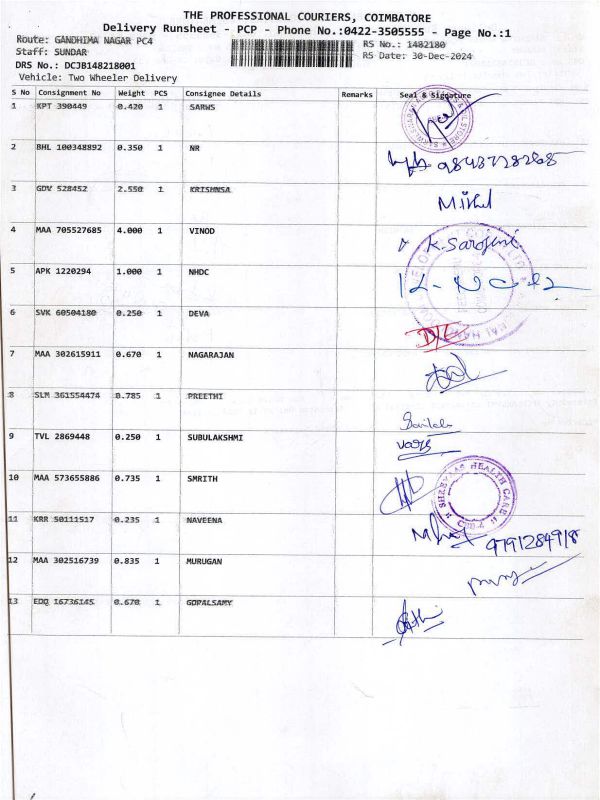 THE PROFESSIONAL COURIERS, COIMBATORE
Delivery Runsheet - PCP - Phone No.:0422-3505555 - Page No.:1
Route: GANDHIMA NAGAR PC4
RS No.: 1482180
Staff: SUNDAR
RS Date: 30-Dec-2024
DRS No.: DCJB148218001
Vehicle: Two Wheeler Delivery
S No Consignment No Weight PCS Consignee Details Remarks Seal & Signature
1 KPT 390449 0.420 1 SARWS
2 BHL 100348892 0.350 1 NR
9843728268
3 GDV 528452 2.550 1 KRISHNSA
4 MAA 705527685 4.000 1 VINOD
K. Sarojini
5 APK 1220294 1.000 1 NHDC
6 SVK 60504180 0.250 1 DEVA
7 MAA 302615911 0.670 1 NAGARAJAN
8 SLM 361554474 0.785 1 PREETHI
9 TVL 2869448 0.250 1 SUBULAKSHMI
10 MAA 573655886 0.735 1 SMRITH
SHREYAAS HEALTH CARE
11 KRR 50111517 0.235 1 NAVEENA
9791284918
12 MAA 302516739 0.835 1 MURUGAN
13 EDQ 16736145 0.670 1 GOPALSAMY